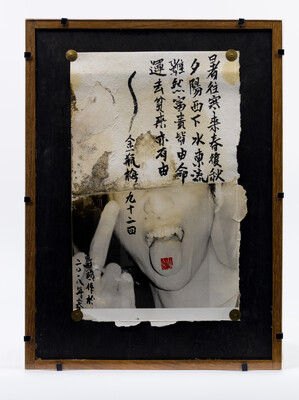 暑往寒来春復秋
夕陽西下水東流
雖然富貴皆由命
運去貧窮亦有由
金瓶梅 九十二回
作於
二〇一八年